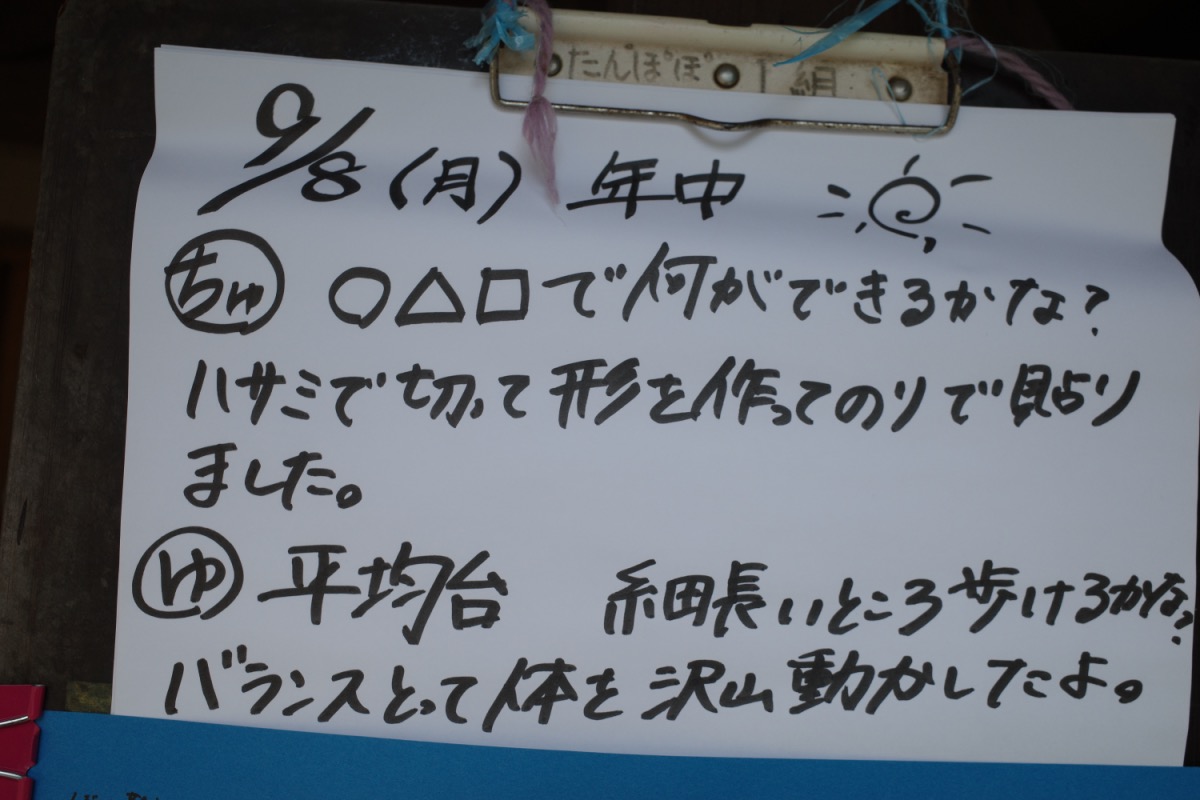 たんぽぽ1組
9/8(月) 年中
ちゅ ○△□で何ができるかな?
ハサミで切って形を作ってのりで貼り
ました。
ゆ 平均台 細長いところ歩けるかな?
バランスとって体を沢山動かしたよ。